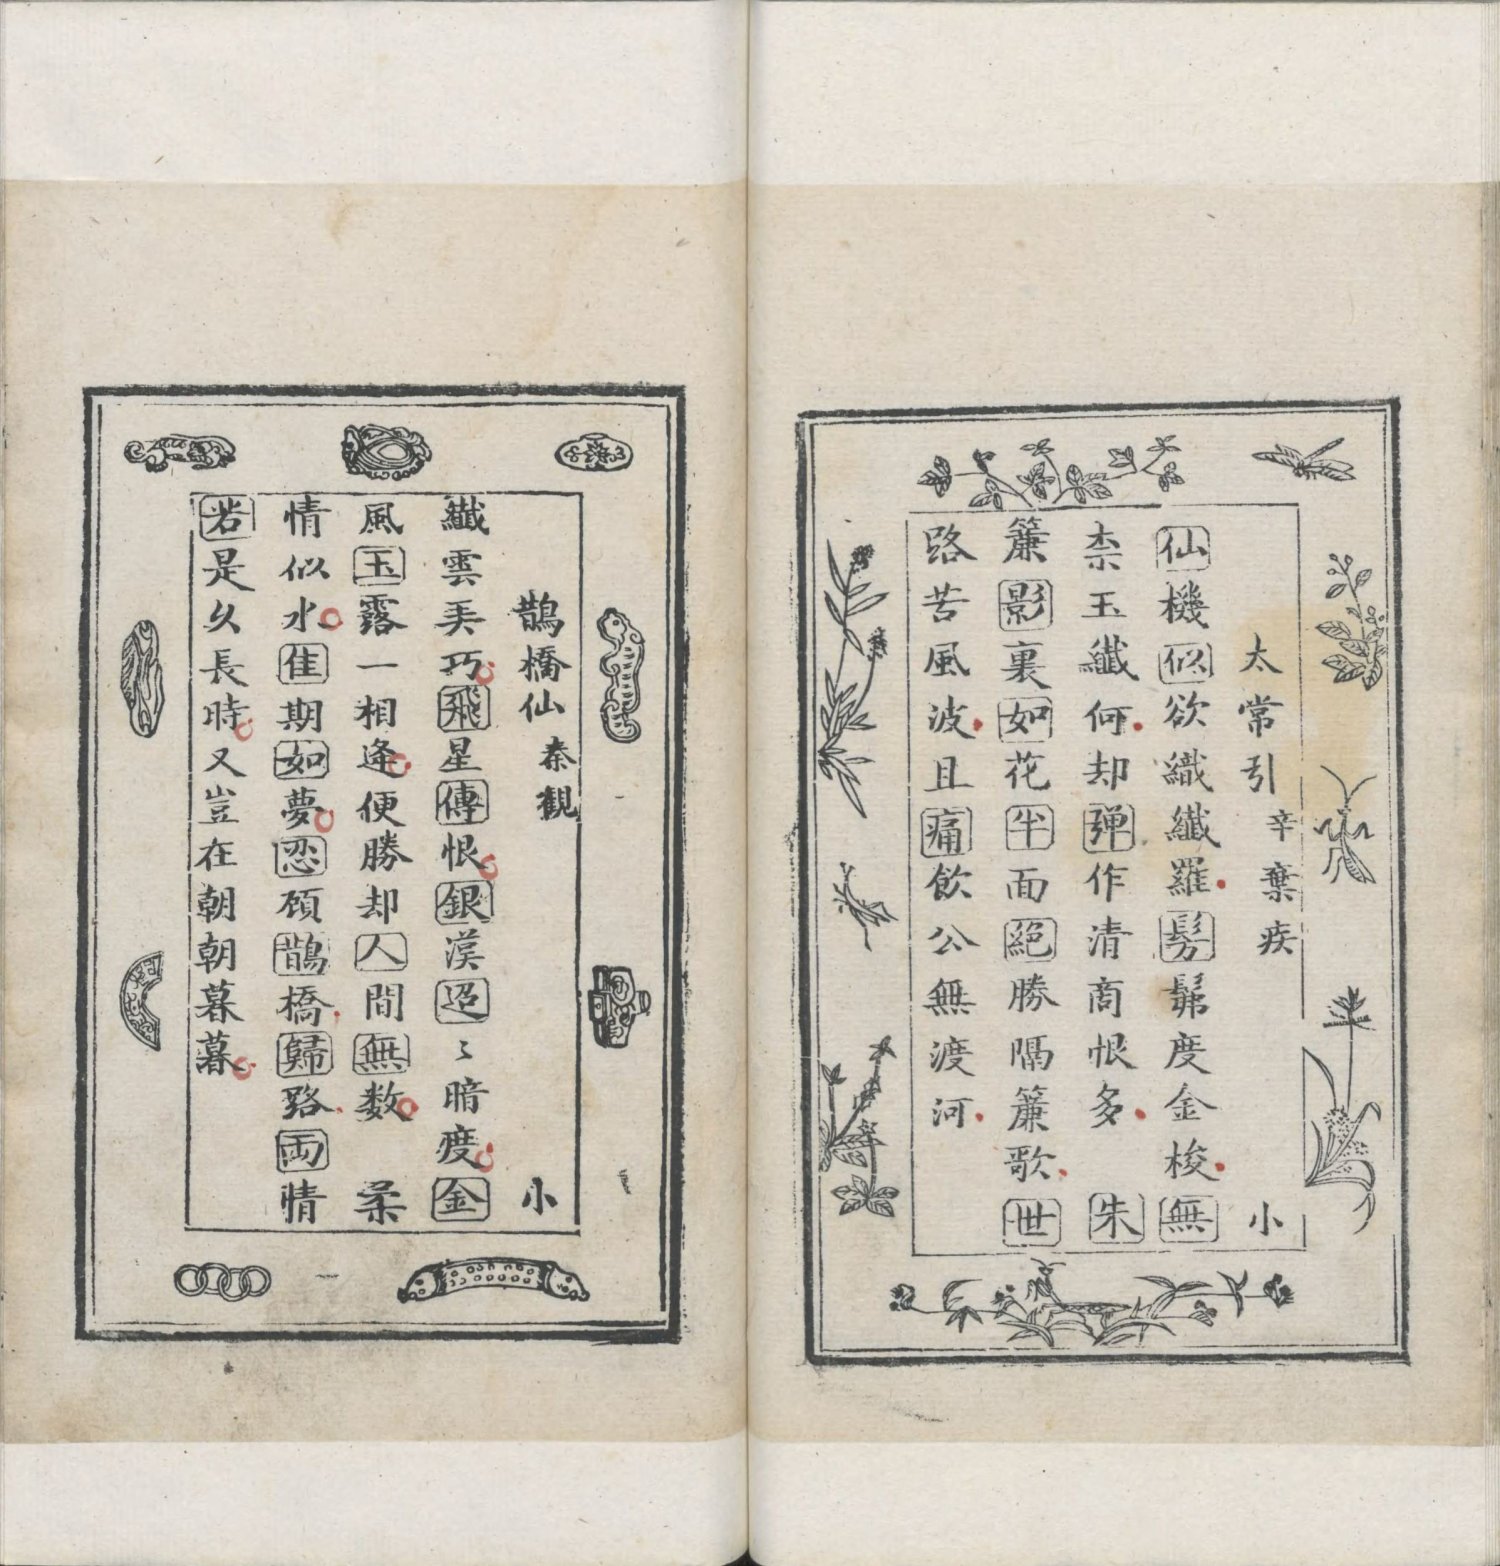 太常引 辛棄疾 小
仙機似欲織纖羅髣髴度金梭無
柰玉纖何却弾作清商恨多 朱
簾影裏如花半面絕勝隔簾歌世
路苦風波且痛飲公無渡河
鵲橋仙 秦觀 小
纖雲弄巧飛星傳恨銀漢迢〻暗度金
風玉露一相逢便勝却人間無数 柔
情似水佳期如夢忍顧鵲橋歸路両情
若是久長時又豈在朝朝暮暮